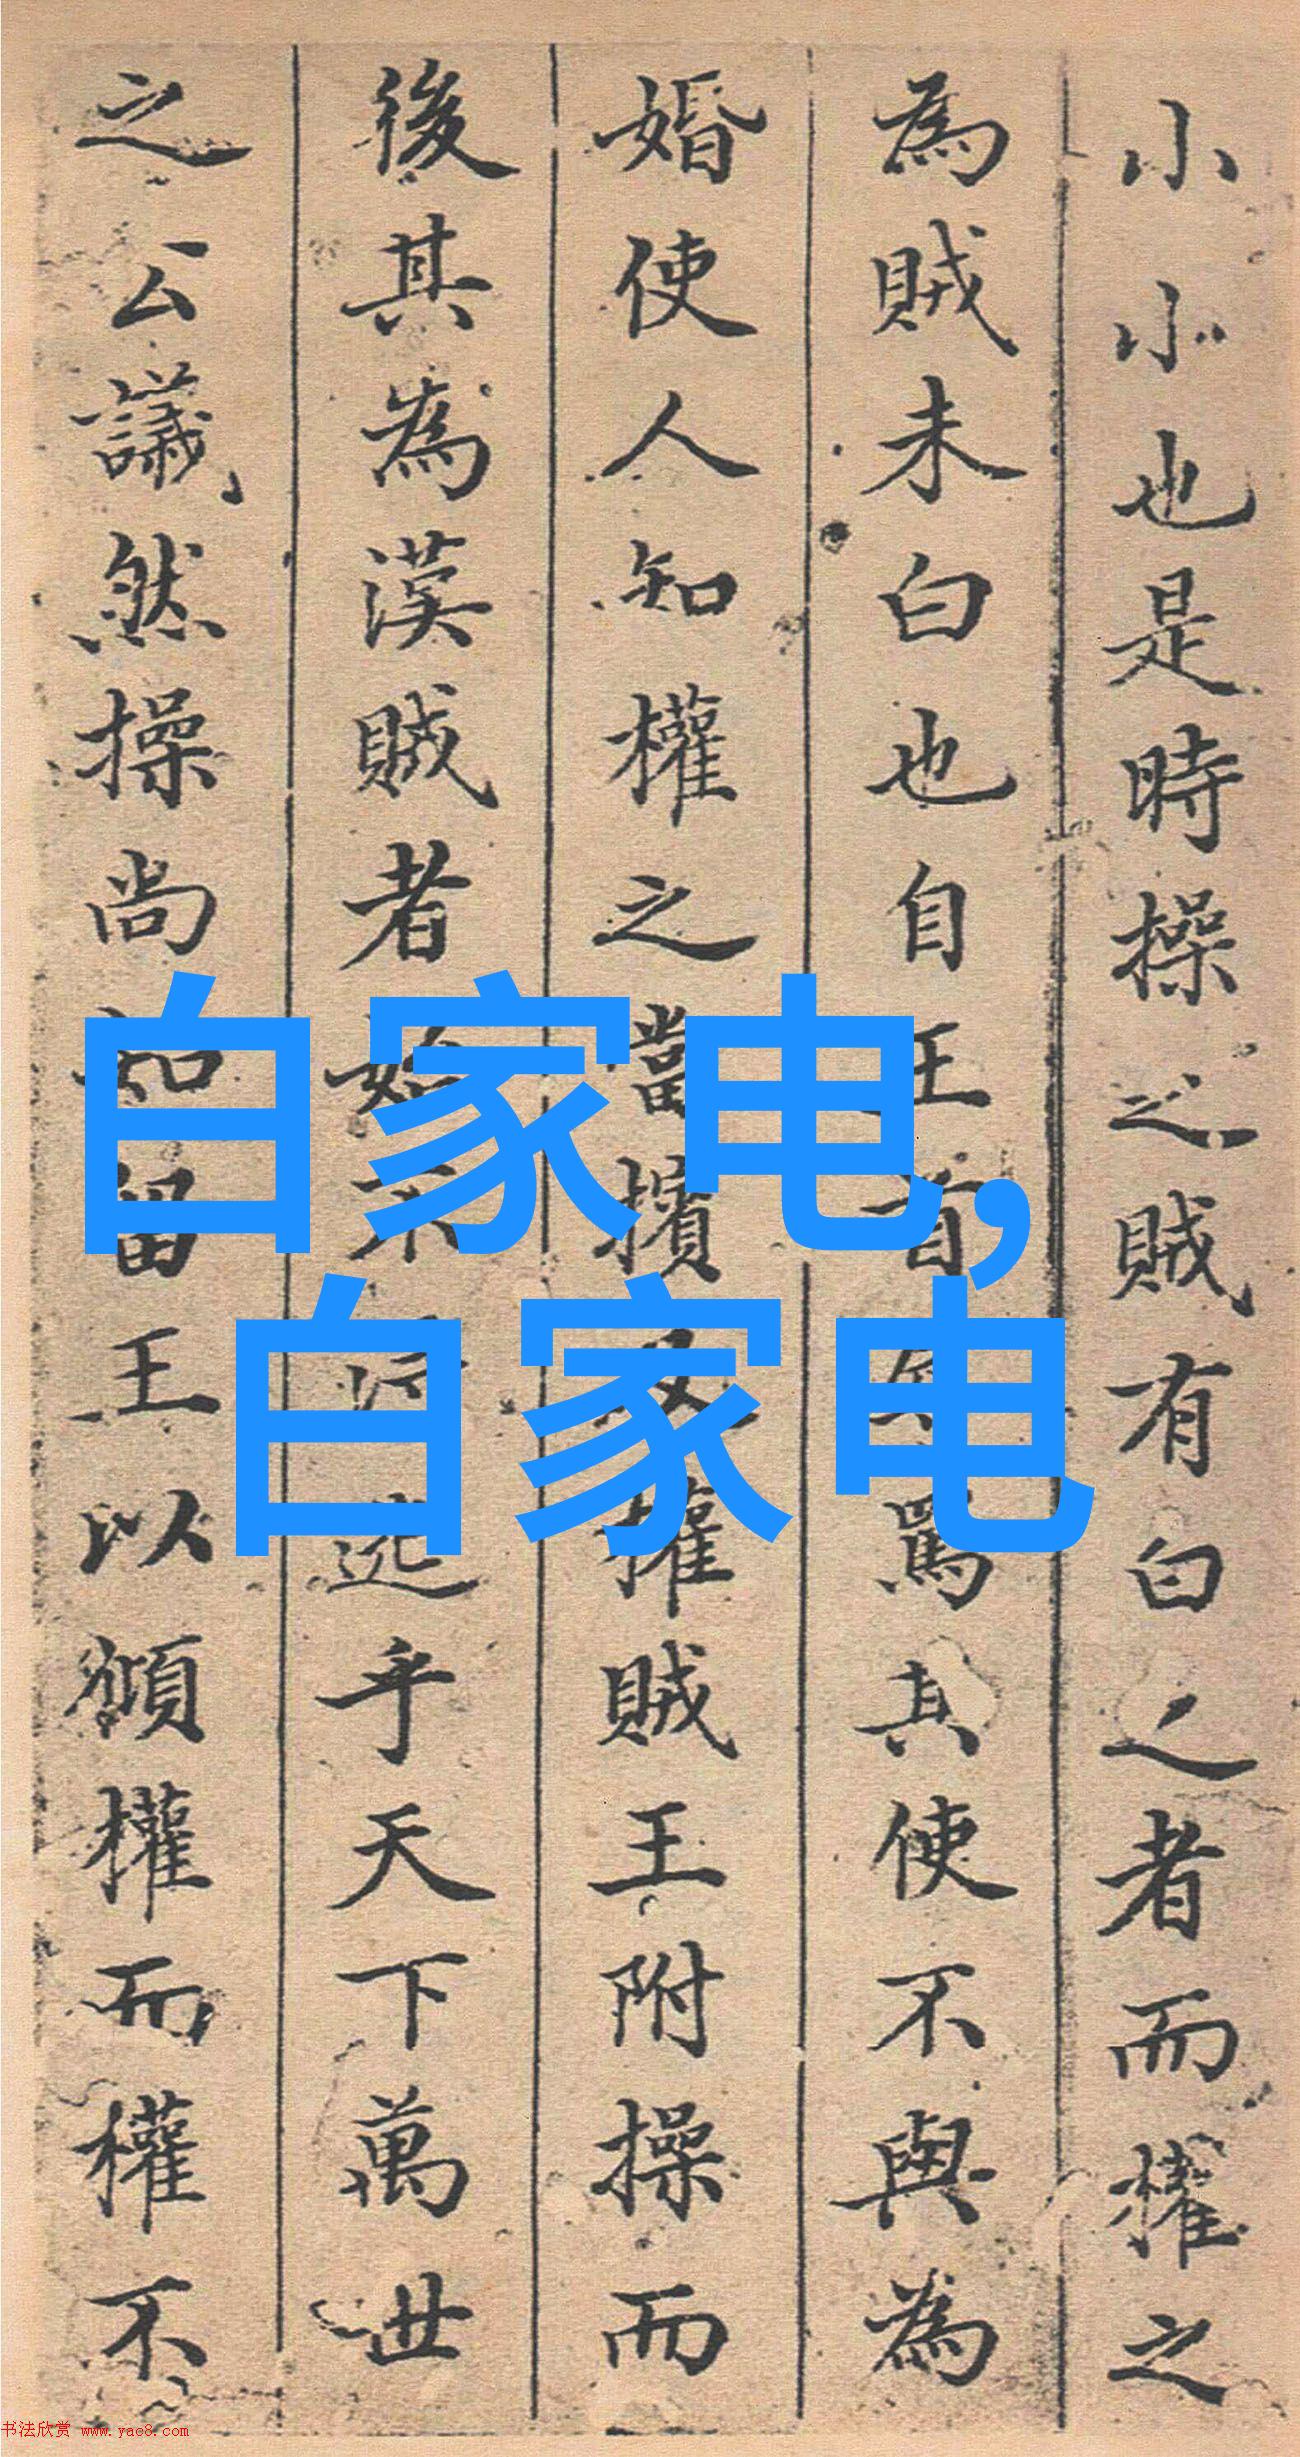 小小也是時操之賊有白之者而權之
為賊未白也自王罵其使不與為
婚使人知權之當擯權賊王附操而
後其為漢賊者乎天下萬世
之公議然操尚王以領權而權不
白家电,
白家电
书法欣赏 www.yac8.com